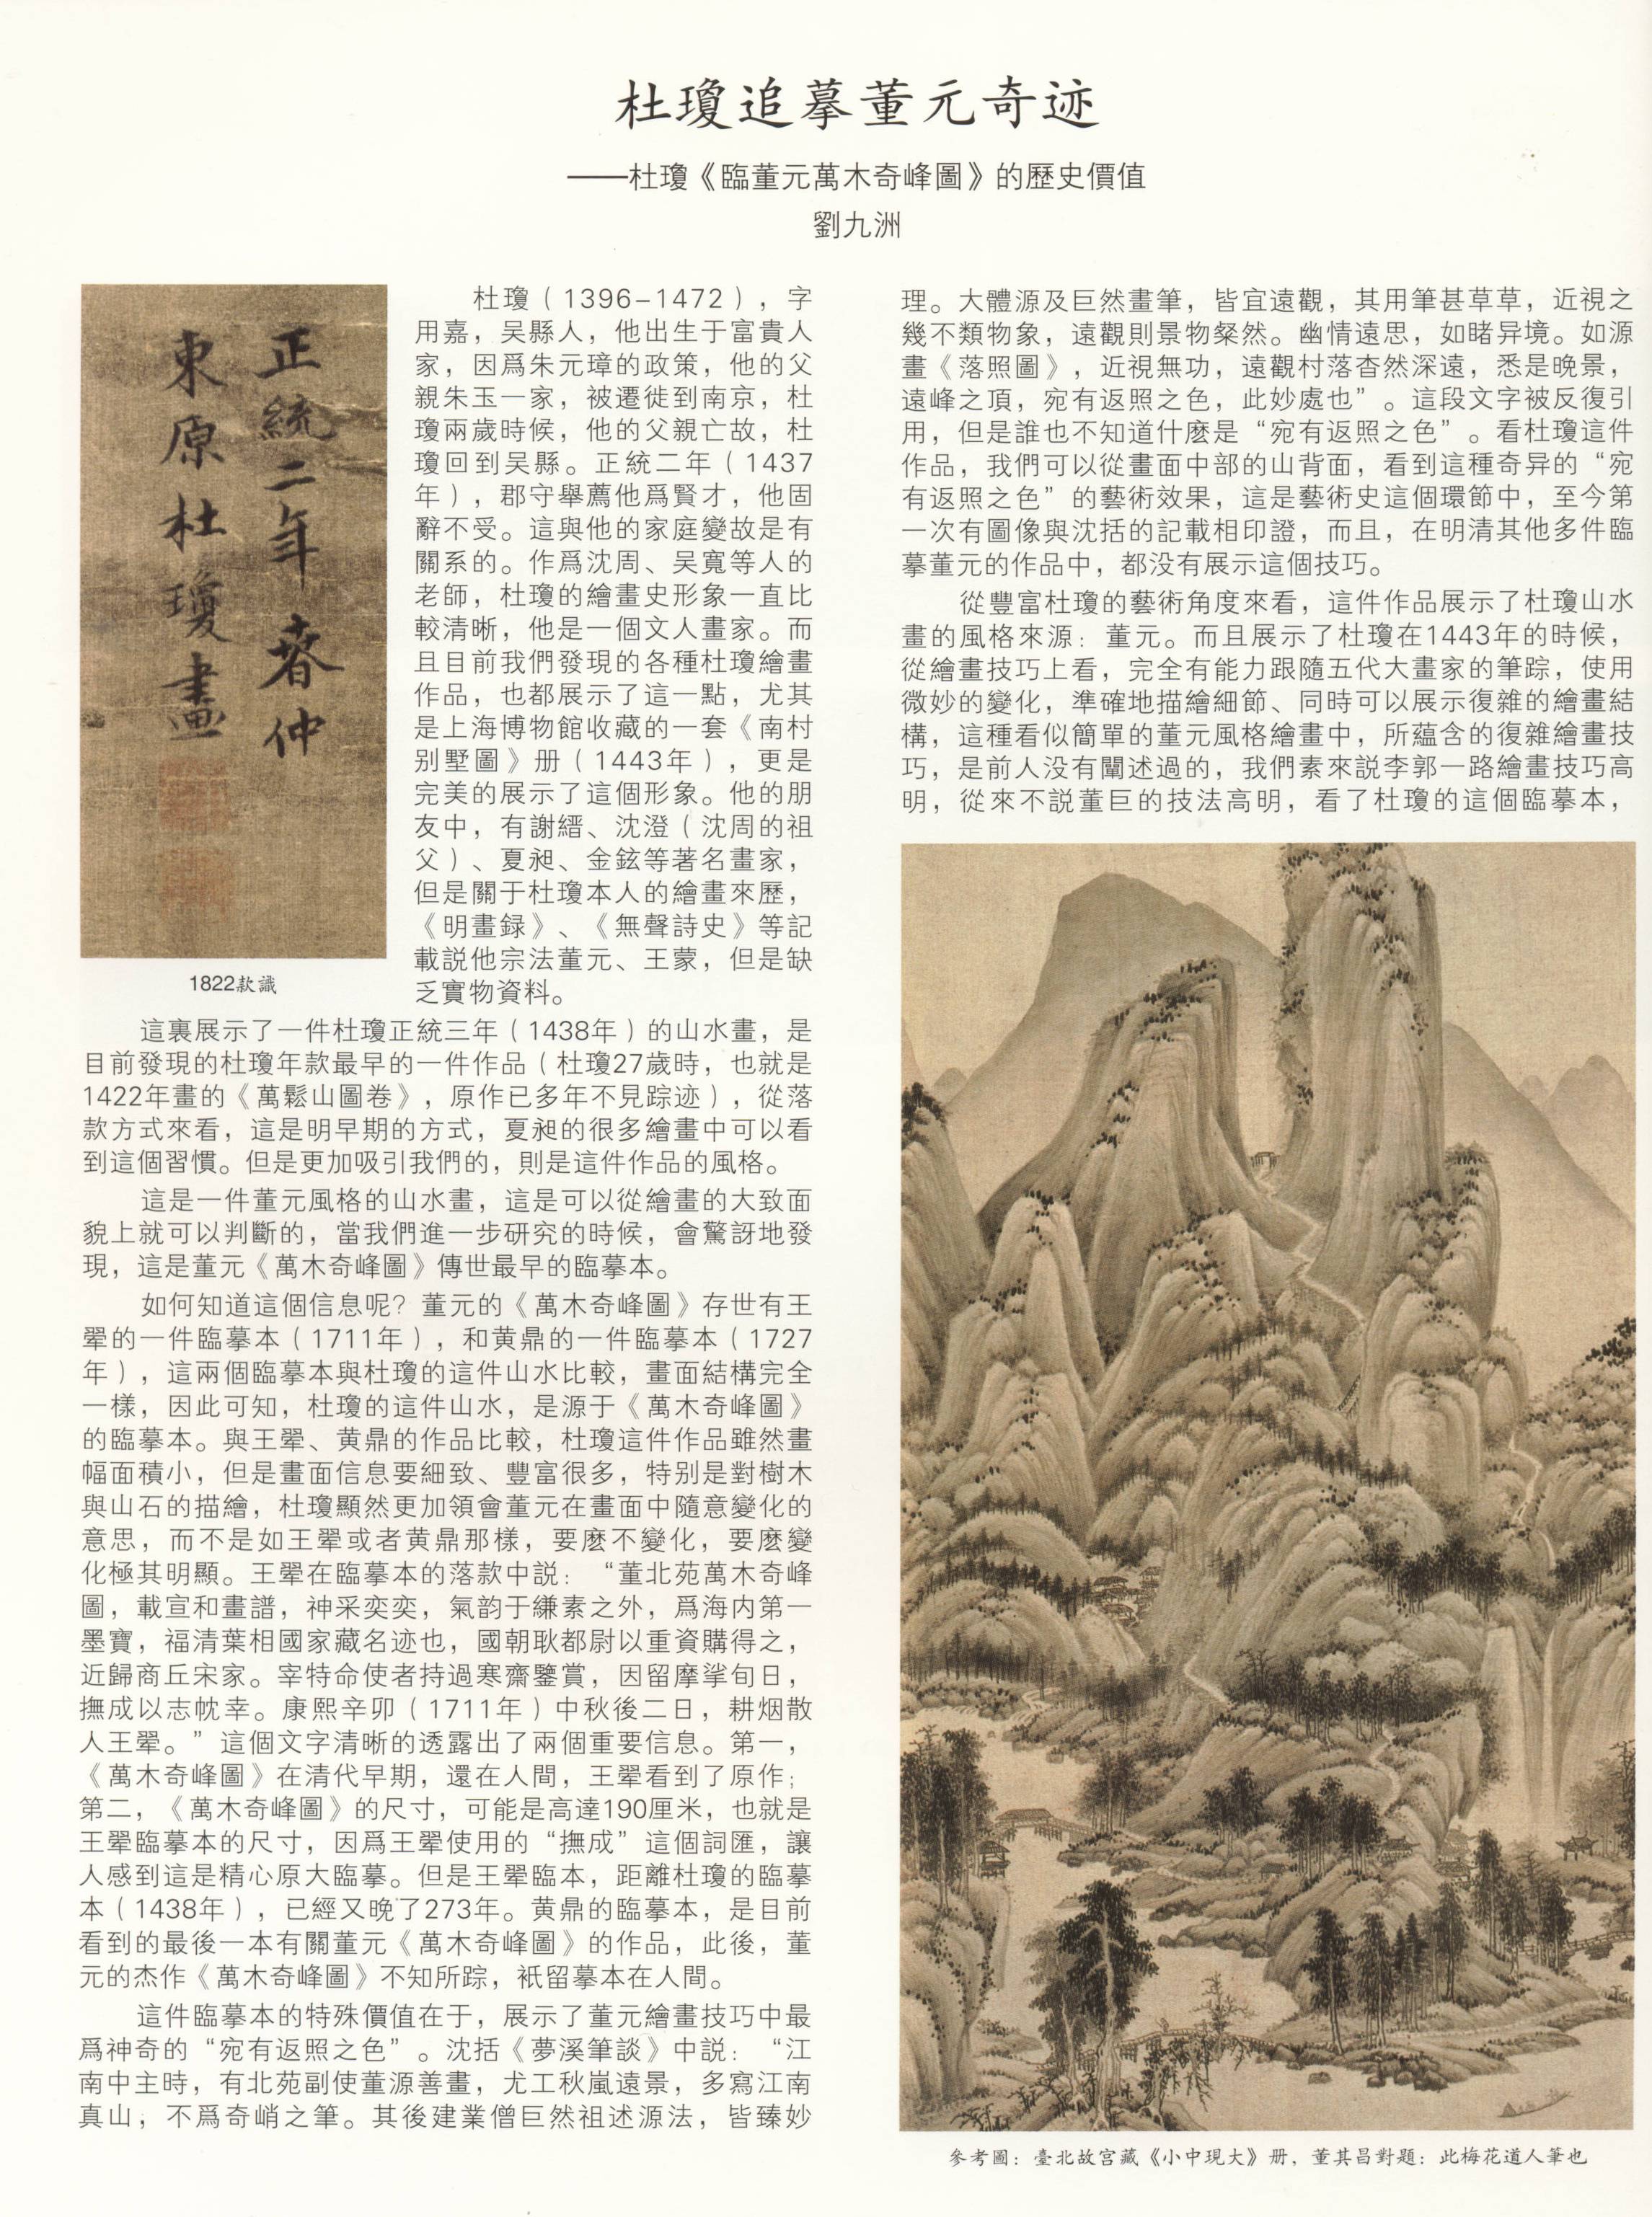 杜瓊追摹董元奇迹
——杜瓊《臨董元萬木奇峰圖》的歷史價值
劉九洲
正統二年春仲
東原杜瓊畫
1822款識
杜瓊（1396–1472），字
用嘉，吴縣人，他出生于富貴人
家，因爲朱元璋的政策，他的父
親朱玉一家，被遷徙到南京，杜
瓊兩歲時候，他的父親亡故，杜
瓊回到吴縣。正統二年（1437
年），郡守舉薦他爲賢才，他固
辭不受。這與他的家庭變故是有
關系的。作爲沈周、吴寬等人的
老師，杜瓊的繪畫史形象一直比
較清晰，他是一個文人畫家。而
且目前我們發現的各種杜瓊繪畫
作品，也都展示了這一點，尤其
是上海博物館收藏的一套《南村
别墅圖》册（1443年），更是
完美的展示了這個形象。他的朋
友中，有謝縉、沈澄（沈周的祖
父）、夏昶、金鉉等著名畫家，
但是關于杜瓊本人的繪畫來歷，
《明畫録》、《無聲詩史》等記
載説他宗法董元、王蒙，但是缺
乏實物資料。
這裏展示了一件杜瓊正統三年（1438年）的山水畫，是
目前發現的杜瓊年款最早的一件作品（杜瓊27歲時，也就是
1422年畫的《萬鬆山圖卷》，原作已多年不見踪迹），從落
款方式來看，這是明早期的方式，夏昶的很多繪畫中可以看
到這個習慣。但是更加吸引我們的，則是這件作品的風格。
這是一件董元風格的山水畫，這是可以從繪畫的大致面
貌上就可以判斷的，當我們進一步研究的時候，會驚訝地發
現，這是董元《萬木奇峰圖》傳世最早的臨摹本。
如何知道這個信息呢？董元的《萬木奇峰圖》存世有王
翬的一件臨摹本（1711年），和黄鼎的一件臨摹本（1727
年），這兩個臨摹本與杜瓊的這件山水比較，畫面結構完全
一樣，因此可知，杜瓊的這件山水，是源于《萬木奇峰圖》
的臨摹本。與王翬、黄鼎的作品比較，杜瓊這件作品雖然畫
幅面積小，但是畫面信息要細致、豐富很多，特别是對樹木
與山石的描繪，杜瓊顯然更加領會董元在畫面中隨意變化的
意思，而不是如王翬或者黄鼎那樣，要麽不變化，要麽變
化極其明顯。王翬在臨摹本的落款中説：“董北苑萬木奇峰
圖，載宣和畫譜，神采奕奕，氣韵于縑素之外，爲海内第一
墨寶，福清葉相國家藏名迹也，國朝耿都尉以重資購得之，
近歸商丘宋家。宰特命使者持過寒齋鑒賞，因留摩挲旬日，
撫成以志忱幸。康熙辛卯（1711年）中秋後二日，耕烟散
人王翬。”這個文字清晰的透露出了兩個重要信息。第一，
《萬木奇峰圖》在清代早期，還在人間，王翬看到了原作；
第二，《萬木奇峰圖》的尺寸，可能是高達190厘米，也就是
王翬臨摹本的尺寸，因爲王翬使用的“撫成”這個詞匯，讓
人感到這是精心原大臨摹。但是王翬臨本，距離杜瓊的臨摹
本（1438年），已經又晚了273年。黄鼎的臨摹本，是目前
看到的最後一本有關董元《萬木奇峰圖》的作品，此後，董
元的杰作《萬木奇峰圖》不知所踪，衹留摹本在人間。
這件臨摹本的特殊價值在于，展示了董元繪畫技巧中最
爲神奇的“宛有返照之色”。沈括《夢溪筆談》中説：“江
南中主時，有北苑副使董源善畫，尤工秋嵐遠景，多寫江南
真山，不爲奇峭之筆。其後建業僧巨然祖述源法，皆臻妙
理。大體源及巨然畫筆，皆宜遠觀，其用筆甚草草，近視之
幾不類物象，遠觀則景物粲然。幽情遠思，如睹异境。如源
畫《落照圖》，近視無功，遠觀村落杳然深遠，悉是晚景，
遠峰之頂，宛有返照之色，此妙處也”。這段文字被反復引
用，但是誰也不知道什麽是“宛有返照之色”。看杜瓊這件
作品，我們可以從畫面中部的山背面，看到這種奇异的“宛
有返照之色”的藝術效果，這是藝術史這個環節中，至今第
一次有圖像與沈括的記載相印證，而且，在明清其他多件臨
摹董元的作品中，都没有展示這個技巧。
從豐富杜瓊的藝術角度來看，這件作品展示了杜瓊山水
畫的風格來源：董元。而且展示了杜瓊在1443年的時候，
從繪畫技巧上看，完全有能力跟隨五代大畫家的筆踪，使用
微妙的變化，準確地描繪細節、同時可以展示復雜的繪畫結
構，這種看似簡單的董元風格繪畫中，所蘊含的復雜繪畫技
巧，是前人没有闡述過的，我們素來説李郭一路繪畫技巧高
明，從來不説董巨的技法高明，看了杜瓊的這個臨摹本，
參考圖：臺北故宫藏《小中現大》册，董其昌對題：此梅花道人筆也